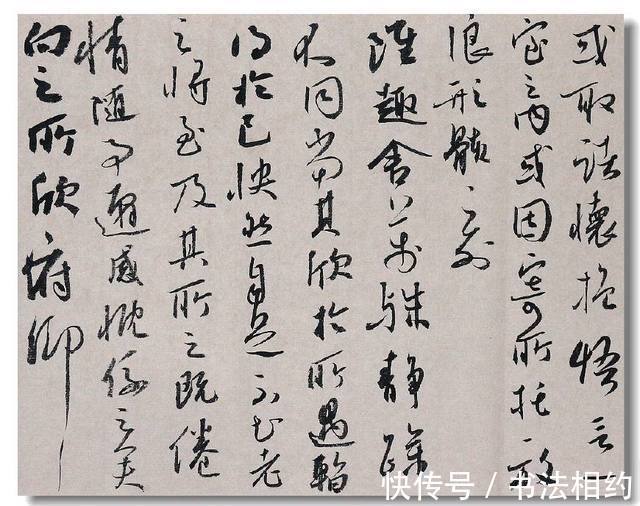 或取諸懷抱悟言一
室之內或因寄所托放
浪形骸之外
雖趣舍萬殊靜躁
不同當其欣於所遇暫
得於己怏然自足不知老
之將至及其所之既倦
情隨事遷感慨係之矣
向之所欣俯仰
快传号 / 书法相约